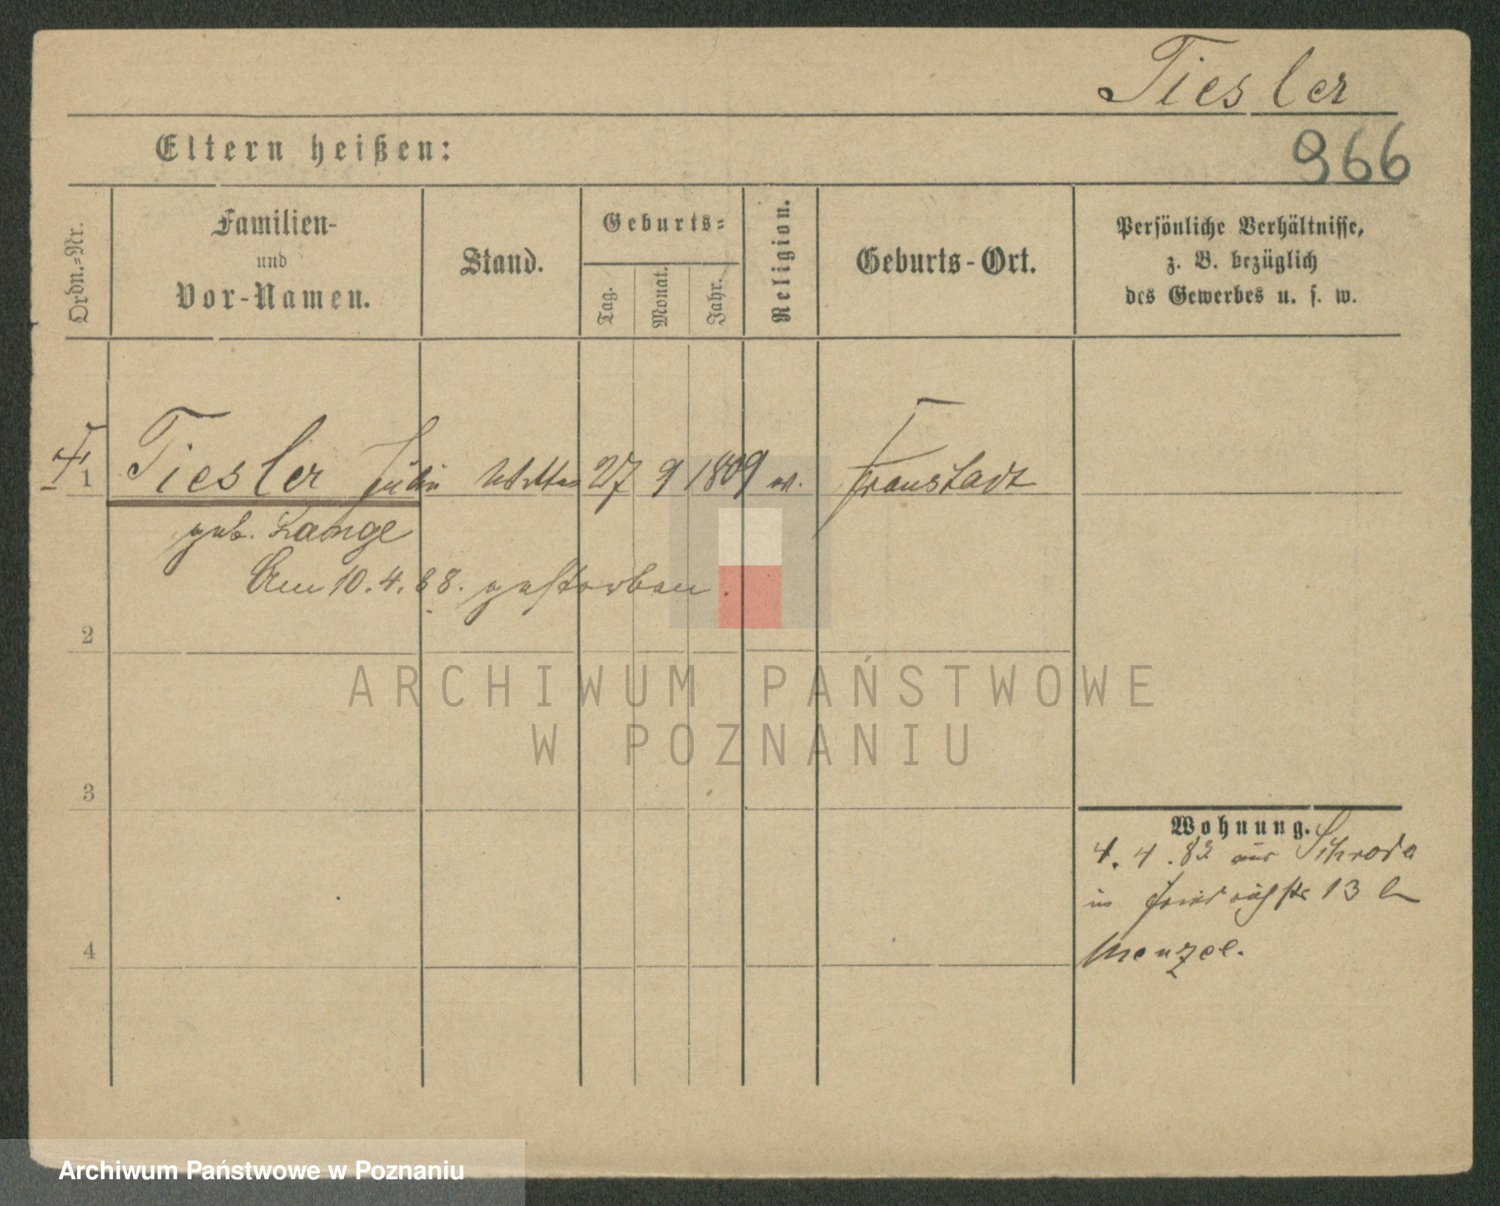 Tiesler
966
Eltern heißen:
Ordn.=Nr.
Familien-
und
Vor-Namen.
Stand.
Geburts=
Tag.
Monat.
Jahr.
Religion.
Geburts-Ort.
Persönliche Verhältnisse,
z. B. bezüglich
des Gewerbes u. s. w.
1 Tiesler 27 9 1809 Fraustadt
geb. Lange
Am 10.4.88. gestorben.
2
ARCHIWUM PAŃSTWOWE
W POZNANIU
3
Wohnung.
4. 4. 82 aus Schroda
in 13
Menzel.
4
Archiwum Państwowe w Poznaniu